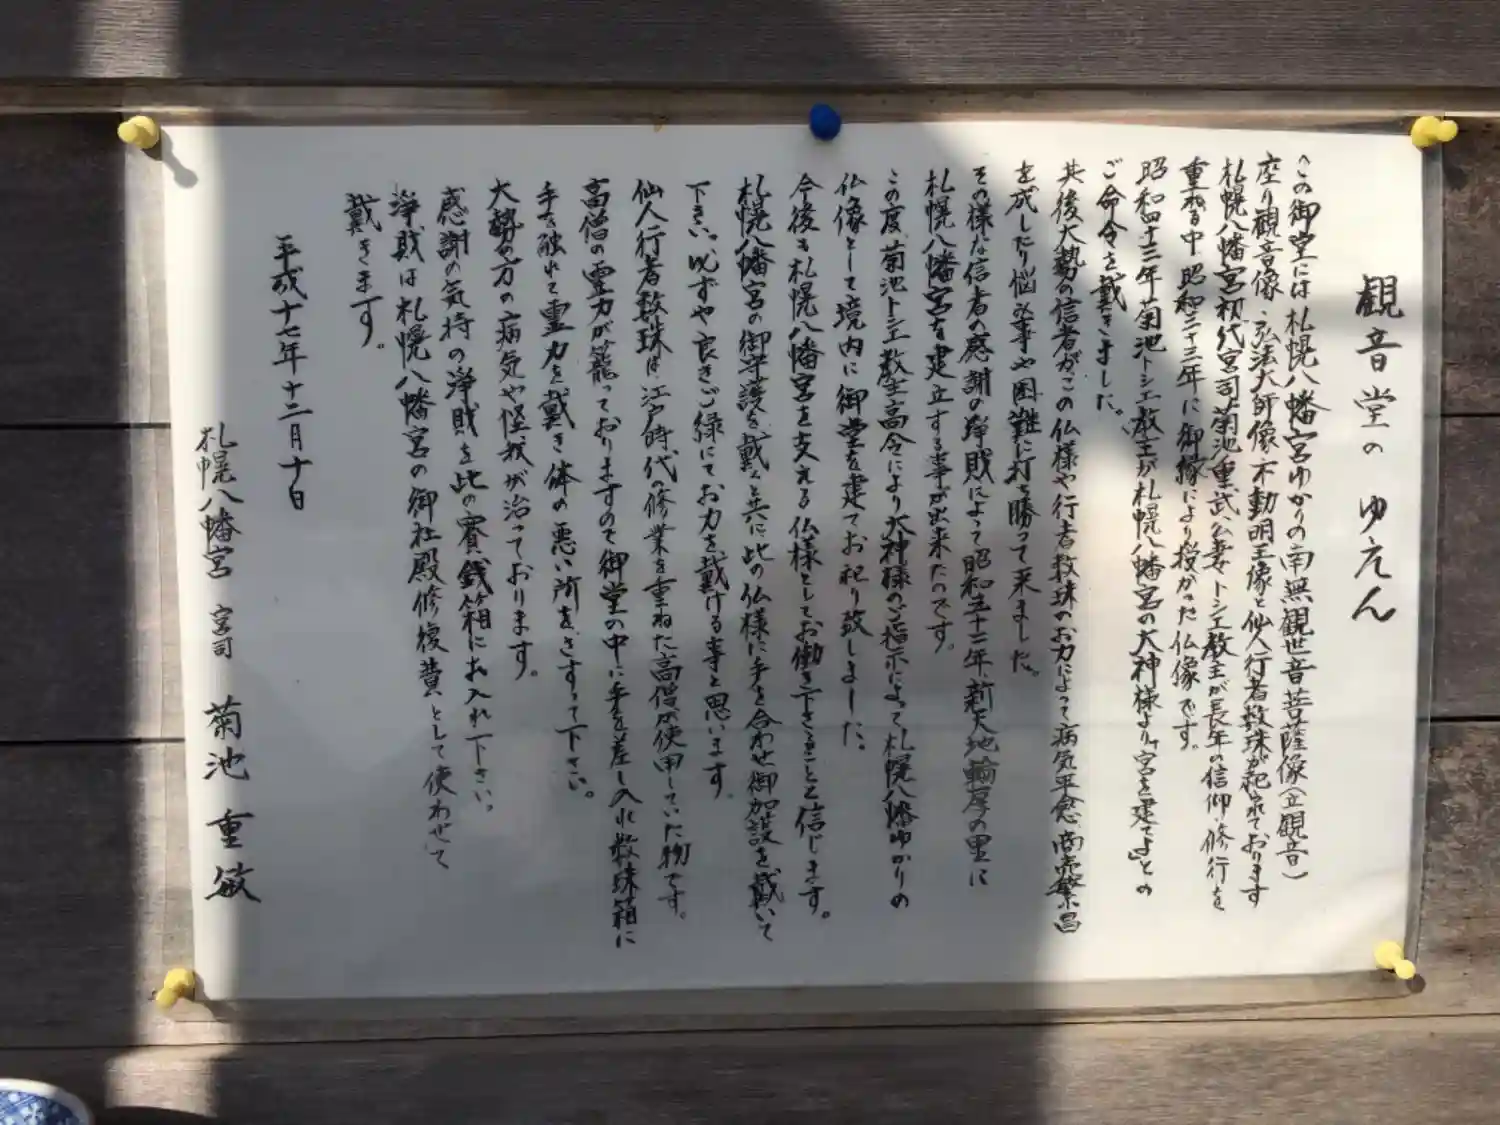 観音堂の ゆえん
へこの御堂には札幌八幡宮ゆかりの南無観世音菩薩像(立観音)
座り観音像、弘法大師像、不動明王像と仙人行者数珠が祀られております
札幌八幡宮初代宮司菊池重武、公妻トシエ教主が長年の信仰・修行を
重ねる中昭和三十三年に御縁により授かった仏像です。
昭和四十三年菊池トシエ教主が札幌八幡宮の大神様より「宮を建てよ」との
ご命令を戴きました。
共後大勢の信者がこの仏様や行者数珠のお力によって病気平念、商売繁昌
を成したり悩み事や困難に打ち勝って来ました。
その様な信者の感謝の浄財によって昭和五十二年、新天地輪厚の里に
札幌八幡宮を建立する事が出来たのです。
この度、菊池トシエ教主髙令により大神様のご指示によって札幌八幡ゆかりの
仏像として境内に御堂を建てお祀り致しました。
今後も札幌八幡宮を支える仏様としてお働き下さることと信じます。
札幌八幡宮の御守護を戴くと共に此の仏様に手を合わせ御加護を戴いて
下さい。必ずや良きご縁にてお力を戴ける事と思います。
仙人行者数珠は、江戸時代の修業を重ねた高僧が使用していた物です。
高僧の霊力が籠っておりますので御堂の中に手を差し入れ数珠箱に
手を触れて霊力を戴き体の悪い所をさすって下さい。
大勢の方の病気や怪我が治っております。
感謝の気持の浄財を此の賽銭箱にお入れ下さい。
浄財は札幌八幡宮の御社殿修復費として使わせて
戴きます。
平成十七年十二月十日
札幌八幡宮 宮司 菊池 重敏